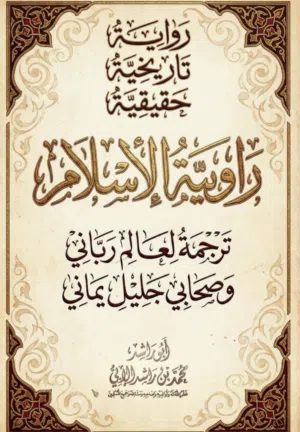 رِوَايَةٌ
تَارِيخِيَّةٌ
حَقِيقِيَّةٌ
رَاوِيَةُ الْإِسْلَامِ
تَرْجَمَةٌ لِعَالِمٍ رَبَّانِي
وَصَحَابِي جَلِيلٍ يَمَانِي
أَبُو رَاشِد
مُحَمَّد بْن رَاشِد